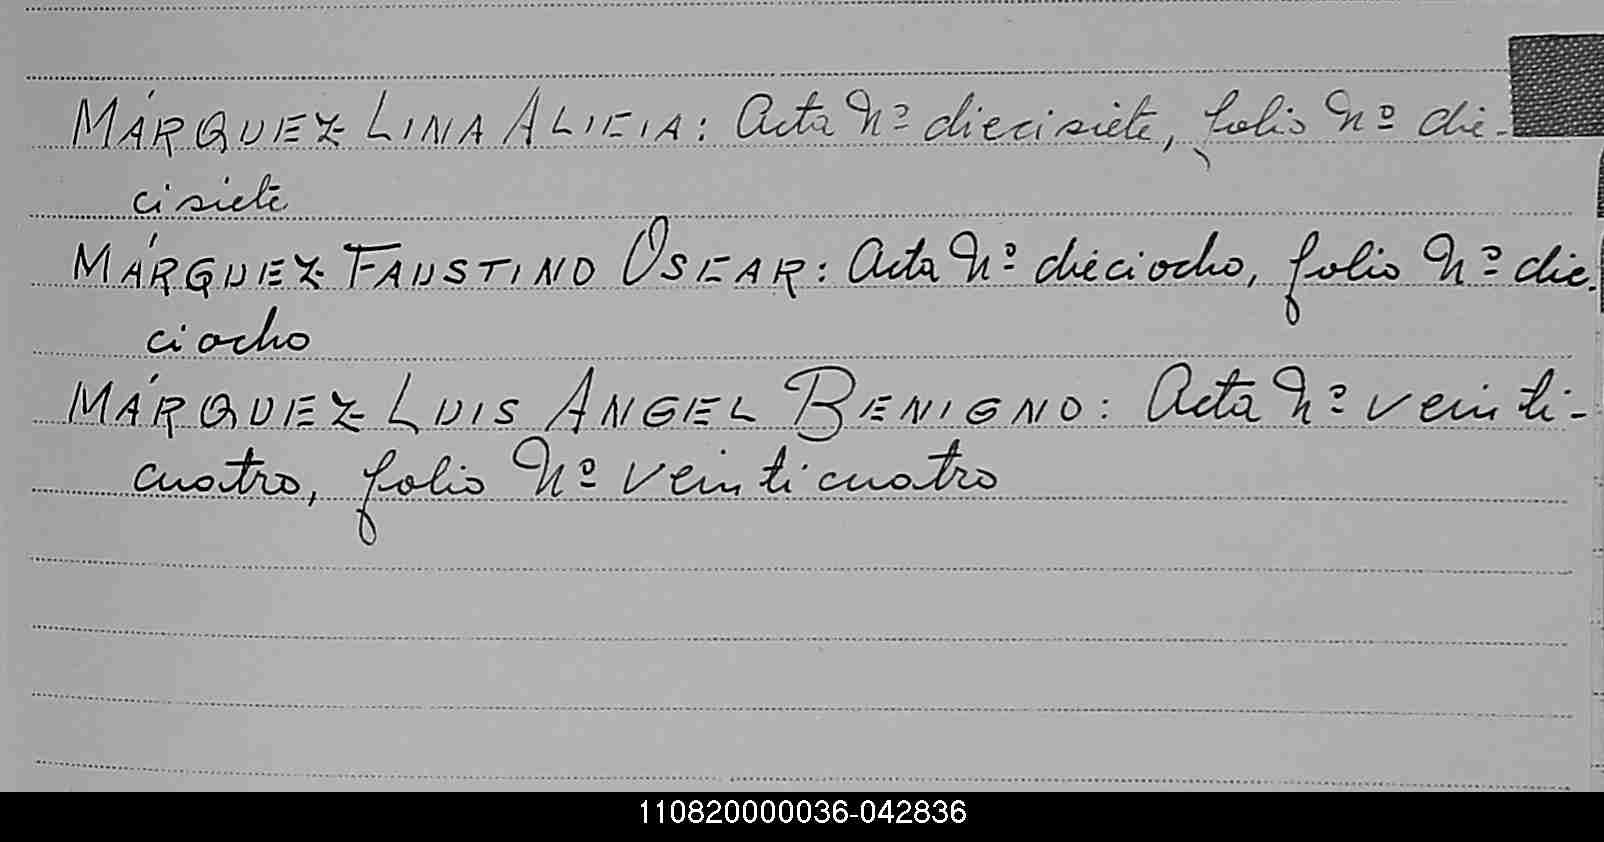 MÁRQUEZ LINA ALICIA: Acta Nº diecisiete, folio Nº die-
cisiete
MÁRQUEZ FAUSTINO OSCAR: Acta Nº dieciocho, folio Nº die-
ciocho
MÁRQUEZ LUIS ANGEL BENIGNO: Acta Nº veinti-
cuatro, folio Nº veinticuatro
110820000036-042836